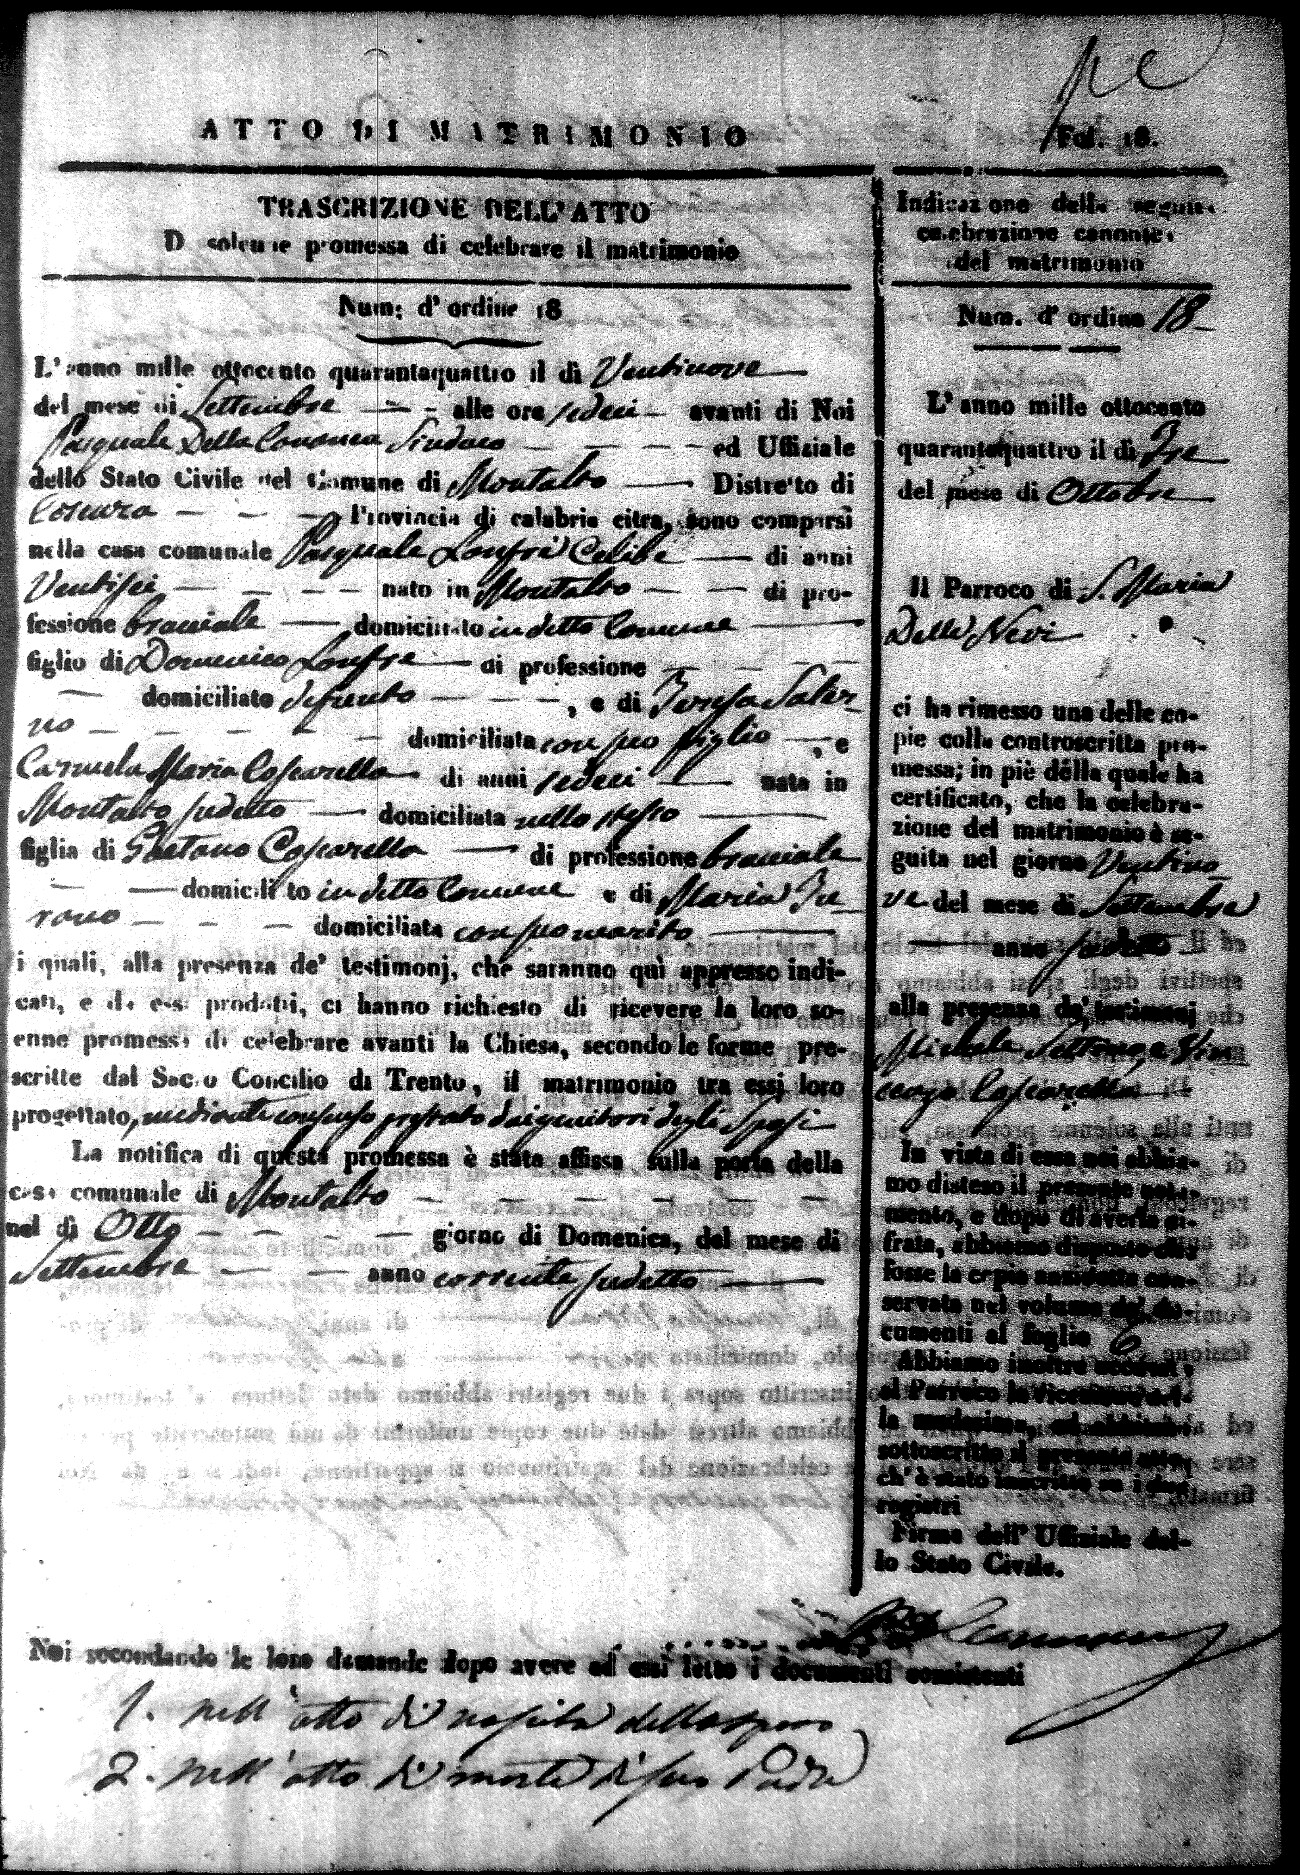 ATTO DI MATRIMONIO
Fol. 18.
TRASCRIZIONE DELL'ATTO
D solenne promessa di celebrare il matrimonio
Num: d'ordine 18
L'anno mille ottocento quarantaquattro il dì Ventinove
del mese di Settembre alle ore sedeci avanti di Noi
Pasquale Della Sindaco ed Uffiziale
dello Stato Civile del Comune di Montalto Distretto di
Cosenza Provincia di calabria citra, sono comparsi
nella casa comunale Pasquale Lonfrè Celibe di anni
Ventisei nato in Montalto di pro-
fessione bracciale domiciliato in detto Comune
figlio di Domenico Lonfre di professione
domiciliato defunto , e di Teresa Saler
no domiciliata con suo figlio , e
Carmela Maria Coscarella di anni sedeci nata in
Montalto sudetto domiciliata nello stesso
figlia di Gaetano Coscarella di professione bracciale
domicili to in detto Comune e di Maria Tre
rono domiciliata con suo marito
i quali, alla presenza de' testimonj, che saranno quì appresso indi-
cati, e da essi prodotti, ci hanno richiesto di ricevere la loro so-
enne promessa di celebrare avanti la Chiesa, secondo le forme pre-
scritte dal Sacro Concilio di Trento, il matrimonio tra essi loro
progettato, mediante consenso prestato dai genitori degli Sposi
La notifica di questa promessa è stata affissa sulla porta della
casa comunale di Montalto
nel dì Otto giorno di Domenica, del mese di
Settembre anno corrente sudetto
Indicazione della seguita
celebrazione canonica
del matrimonio
Num. d'ordine 18
L'anno mille ottocento
quarantaquattro il dì Tre
del mese di Ottobre
Il Parroco di S. Maria
Delle Nevi
ci ha rimesso una delle co-
pie colla controscritta pro-
messa; in piè della quale ha
certificato, che la celebra-
zione del matrimonio è se-
guita nel giorno Ventino
ve del mese di Settembre
anno sudetto
alla presenza de' testimonj
Michele e Vin
cenzo Coscarella
In vista di essa noi abbia-
mo disteso il presente nota-
mento, e dopo di averla ci-
frata, abbiamo disposto che
fosse la copia anzidetta con-
servata nel volume de' do-
cumenti al foglio 6
Abbiamo inoltre accusata
al Parroco la ricezione del-
la medesima, ed abbiamo
sottoscritto il presente atto,
ch'è stato inscritto su i due
registri
Firma dell'Uffiziale del-
lo Stato Civile.
Noi secondando le loro domande dopo avere ad essi letto i documenti consistenti
1. nell'atto di nascita dello sposo
2. nell'atto di morte di suo Padre